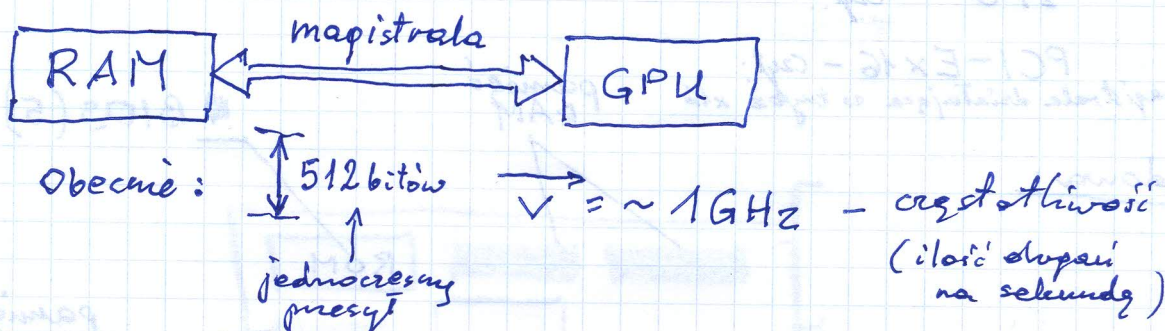 magistrala
RAM
GPU
Obecnie :
512 bitów
V = ~ 1GHz – częstotliwość
(ilość drgań
na sekundę)
jednoczesny
przesył
PCI-E x16 -
RAM